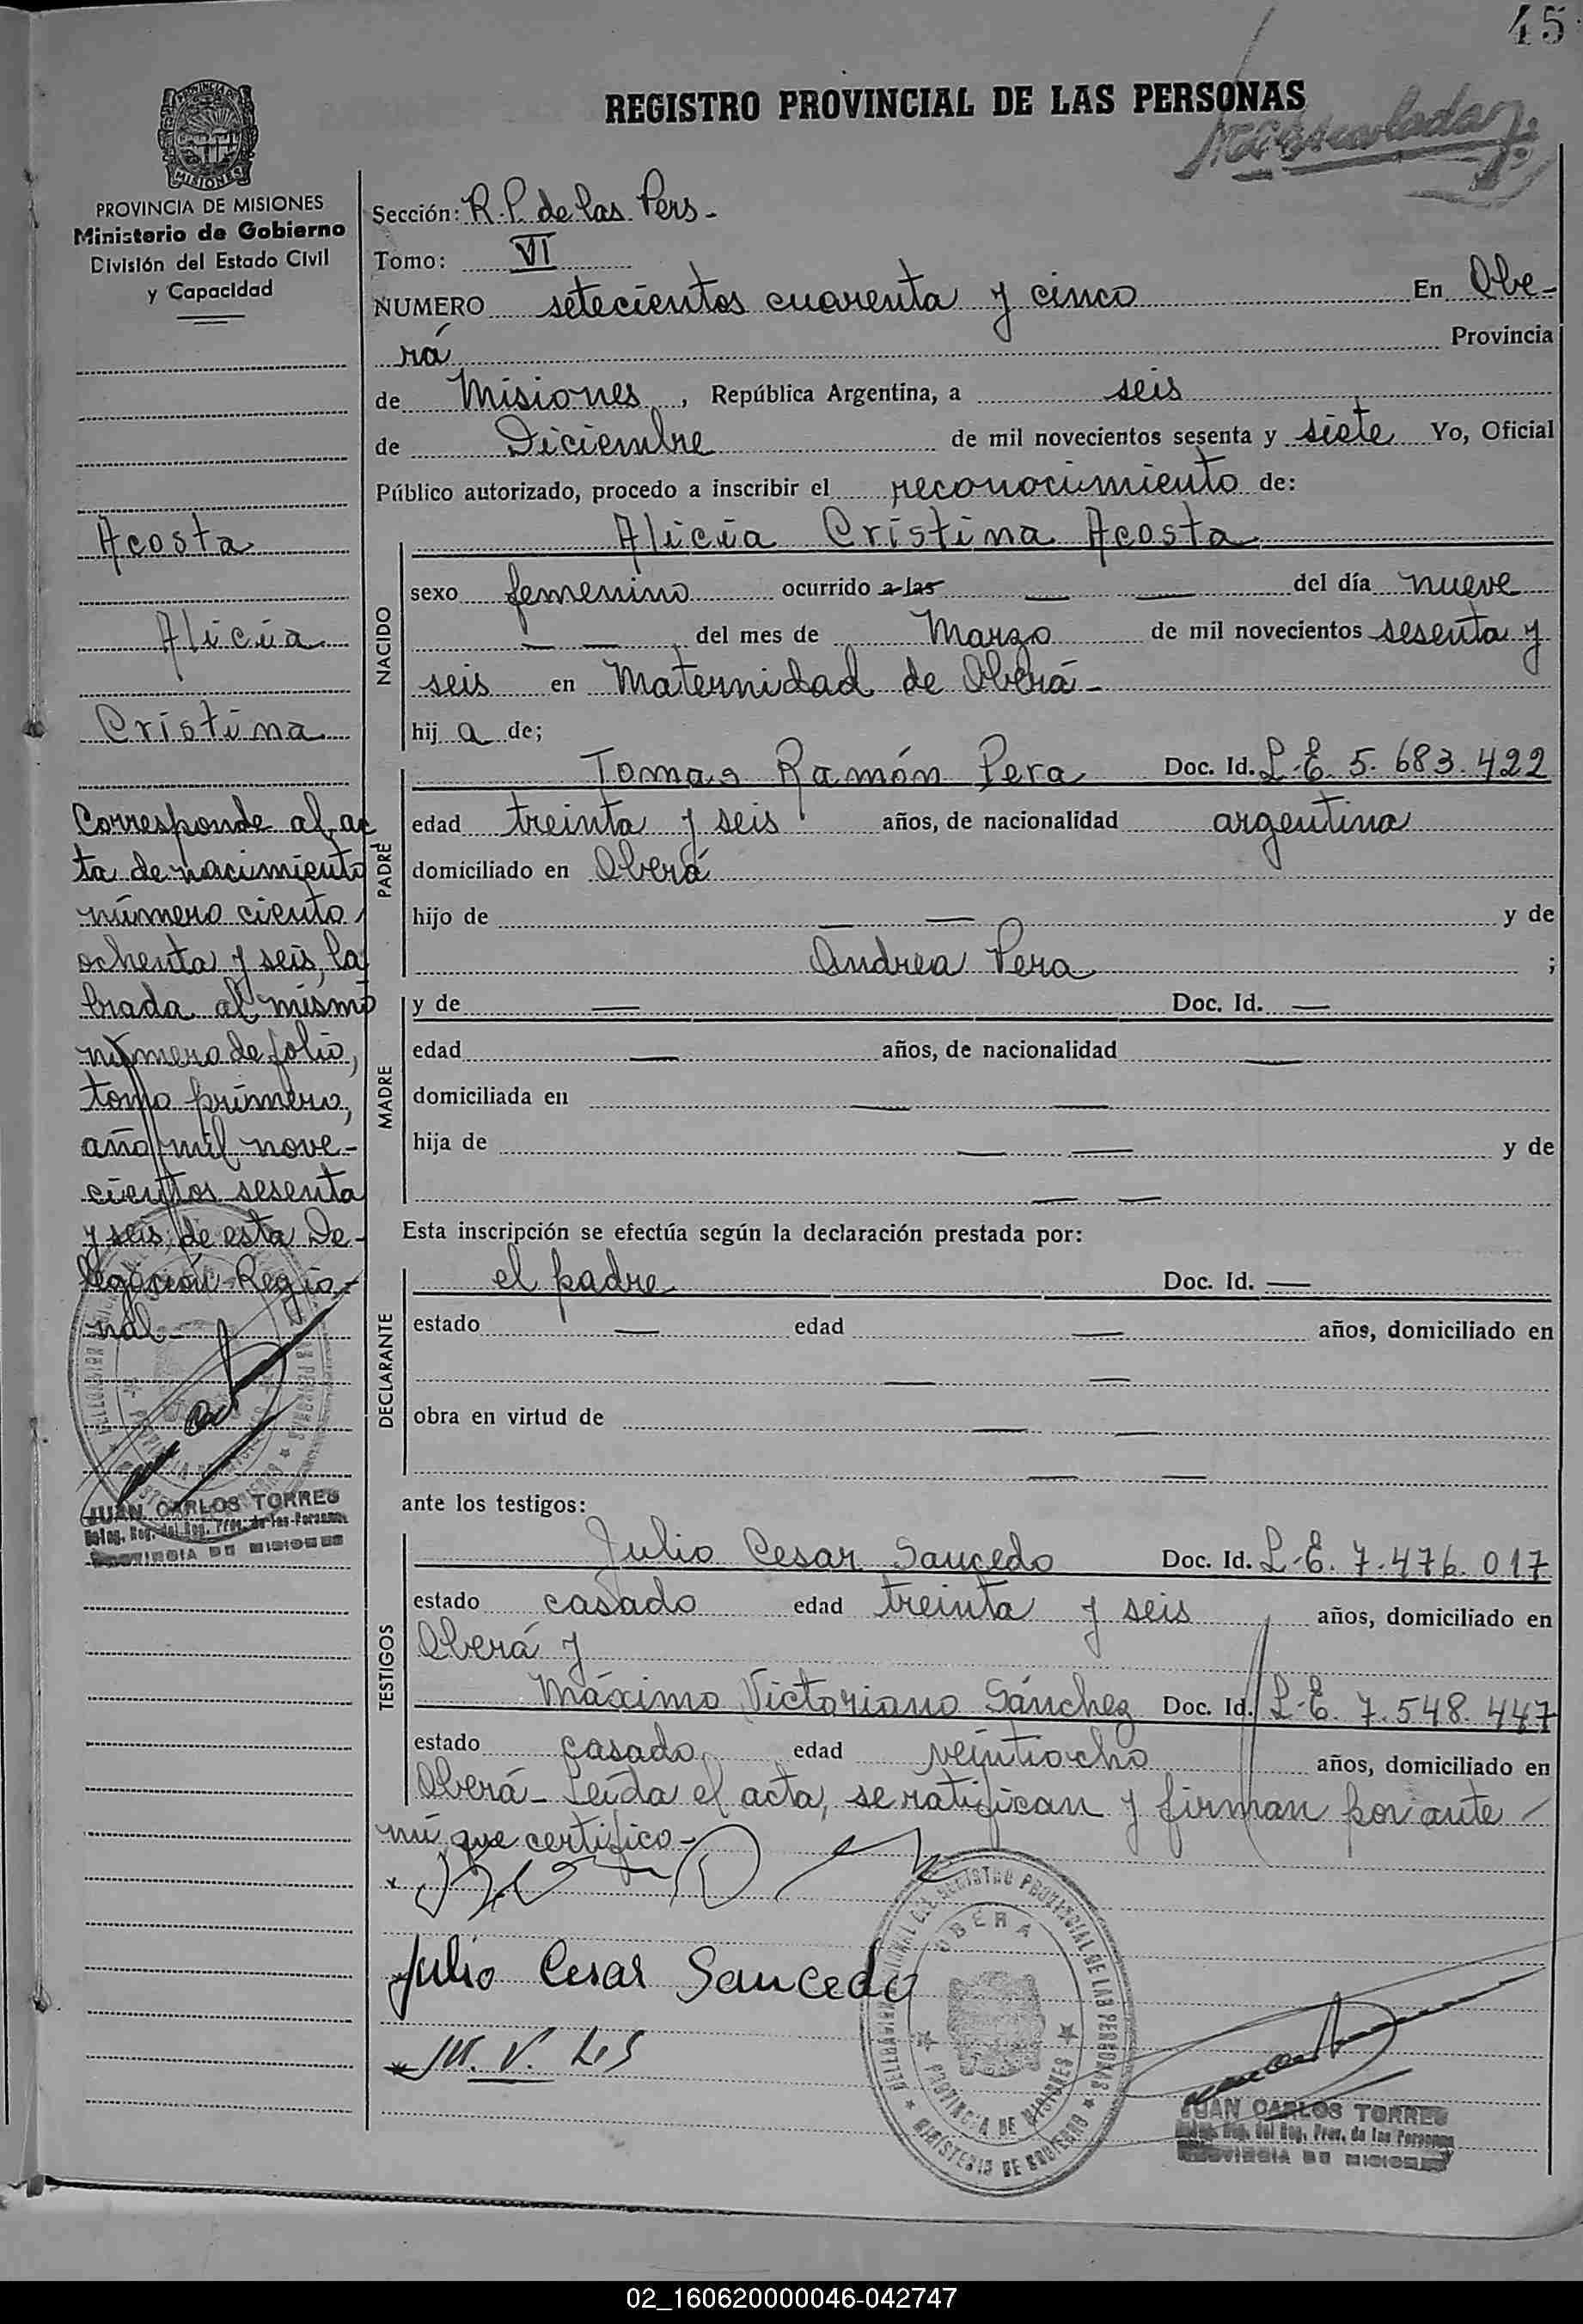 45
REGISTRO PROVINCIAL DE LAS PERSONAS
PROVINCIA DE
MISIONES
PROVINCIA DE MISIONES
Ministerio de Gobierno
División del Estado Civil
y Capacidad
Sección: R.P. de las Pers-
Tomo: VI
NUMERO setecientos cuarenta y cinco En Obe-
rá Provincia
de Misiones, República Argentina, a seis
de Diciembre de mil novecientos sesenta y siete Yo, Oficial
Público autorizado, procedo a inscribir el reconocimiento de:
Alicia Cristina Acosta
NACIDO
sexo femenino ocurrido a las — — del día nueve
— — del mes de Marzo de mil novecientos sesenta y
seis en Maternidad de Oberá-
hij a de;
Tomas Ramón Pera Doc. Id. L.E. 5.683.422
PADRE
edad treinta y seis años, de nacionalidad argentina
domiciliado en Oberá
hijo de — — y de
Andrea Pera ;
MADRE
y de — Doc. Id. —
edad — años, de nacionalidad —
domiciliada en — —
hija de — — y de
— —
Esta inscripción se efectúa según la declaración prestada por:
DECLARANTE
el padre Doc. Id. —
estado — edad — años, domiciliado en
— —
obra en virtud de — —
— —
ante los testigos:
TESTIGOS
Julio Cesar Saucedo Doc. Id. L.E. 7.476.017
estado casado edad treinta y seis años, domiciliado en
Oberá y
Máximo Victoriano Sánchez Doc. Id. L.E. 7.548.447
estado casado edad veintiocho años, domiciliado en
Oberá- Leída el acta, se ratifican y firman por ante
mí que certifico-
Julio Cesar Saucedo
M. V.
DELEGACION REGIONAL DEL REGISTRO PROVINCIAL DE LAS PERSONAS
OBERA
PROVINCIA DE MISIONES
MINISTERIO DE GOBIERNO
JUAN CARLOS TORRES
Deleg. Reg. del Reg. Prov. de las Personas
PROVINCIA DE MISIONES
Acosta
Alicia
Cristina
Corresponde al ac
ta de nacimiento
número ciento
ochenta y seis, la
brada al mismo
número de folio,
tomo primero,
año mil nove-
cientos sesenta
y seis, de esta De-
legación Regio-
nal-
JUAN CARLOS TORRES
Deleg. Reg. del Reg. Prov. de las Personas
PROVINCIA DE MISIONES
02_160620000046-042747